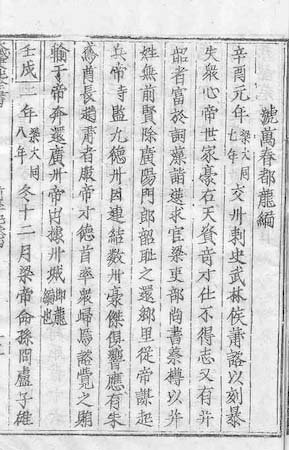 號萬春都龍編
辛酉元年梁大同七年交州刺史武林侯蕭諮以刻暴
失衆心帝世家豪右天資奇才仕不得志又有并
韶者富於詞藻詣選求官梁吏部尚書蔡樽以并
姓無前賢除廣陽門郎韶耻之還鄉里從帝謀起
兵帝時監九德州因連結數州豪傑俱響應有朱
鳶酋長趙肅者服帝才德首率衆歸焉諮覺之賄
輸于帝奔還廣州帝出據州城即龍編也
壬戌二年梁大同八年冬十二月梁帝命孫冏盧子雄